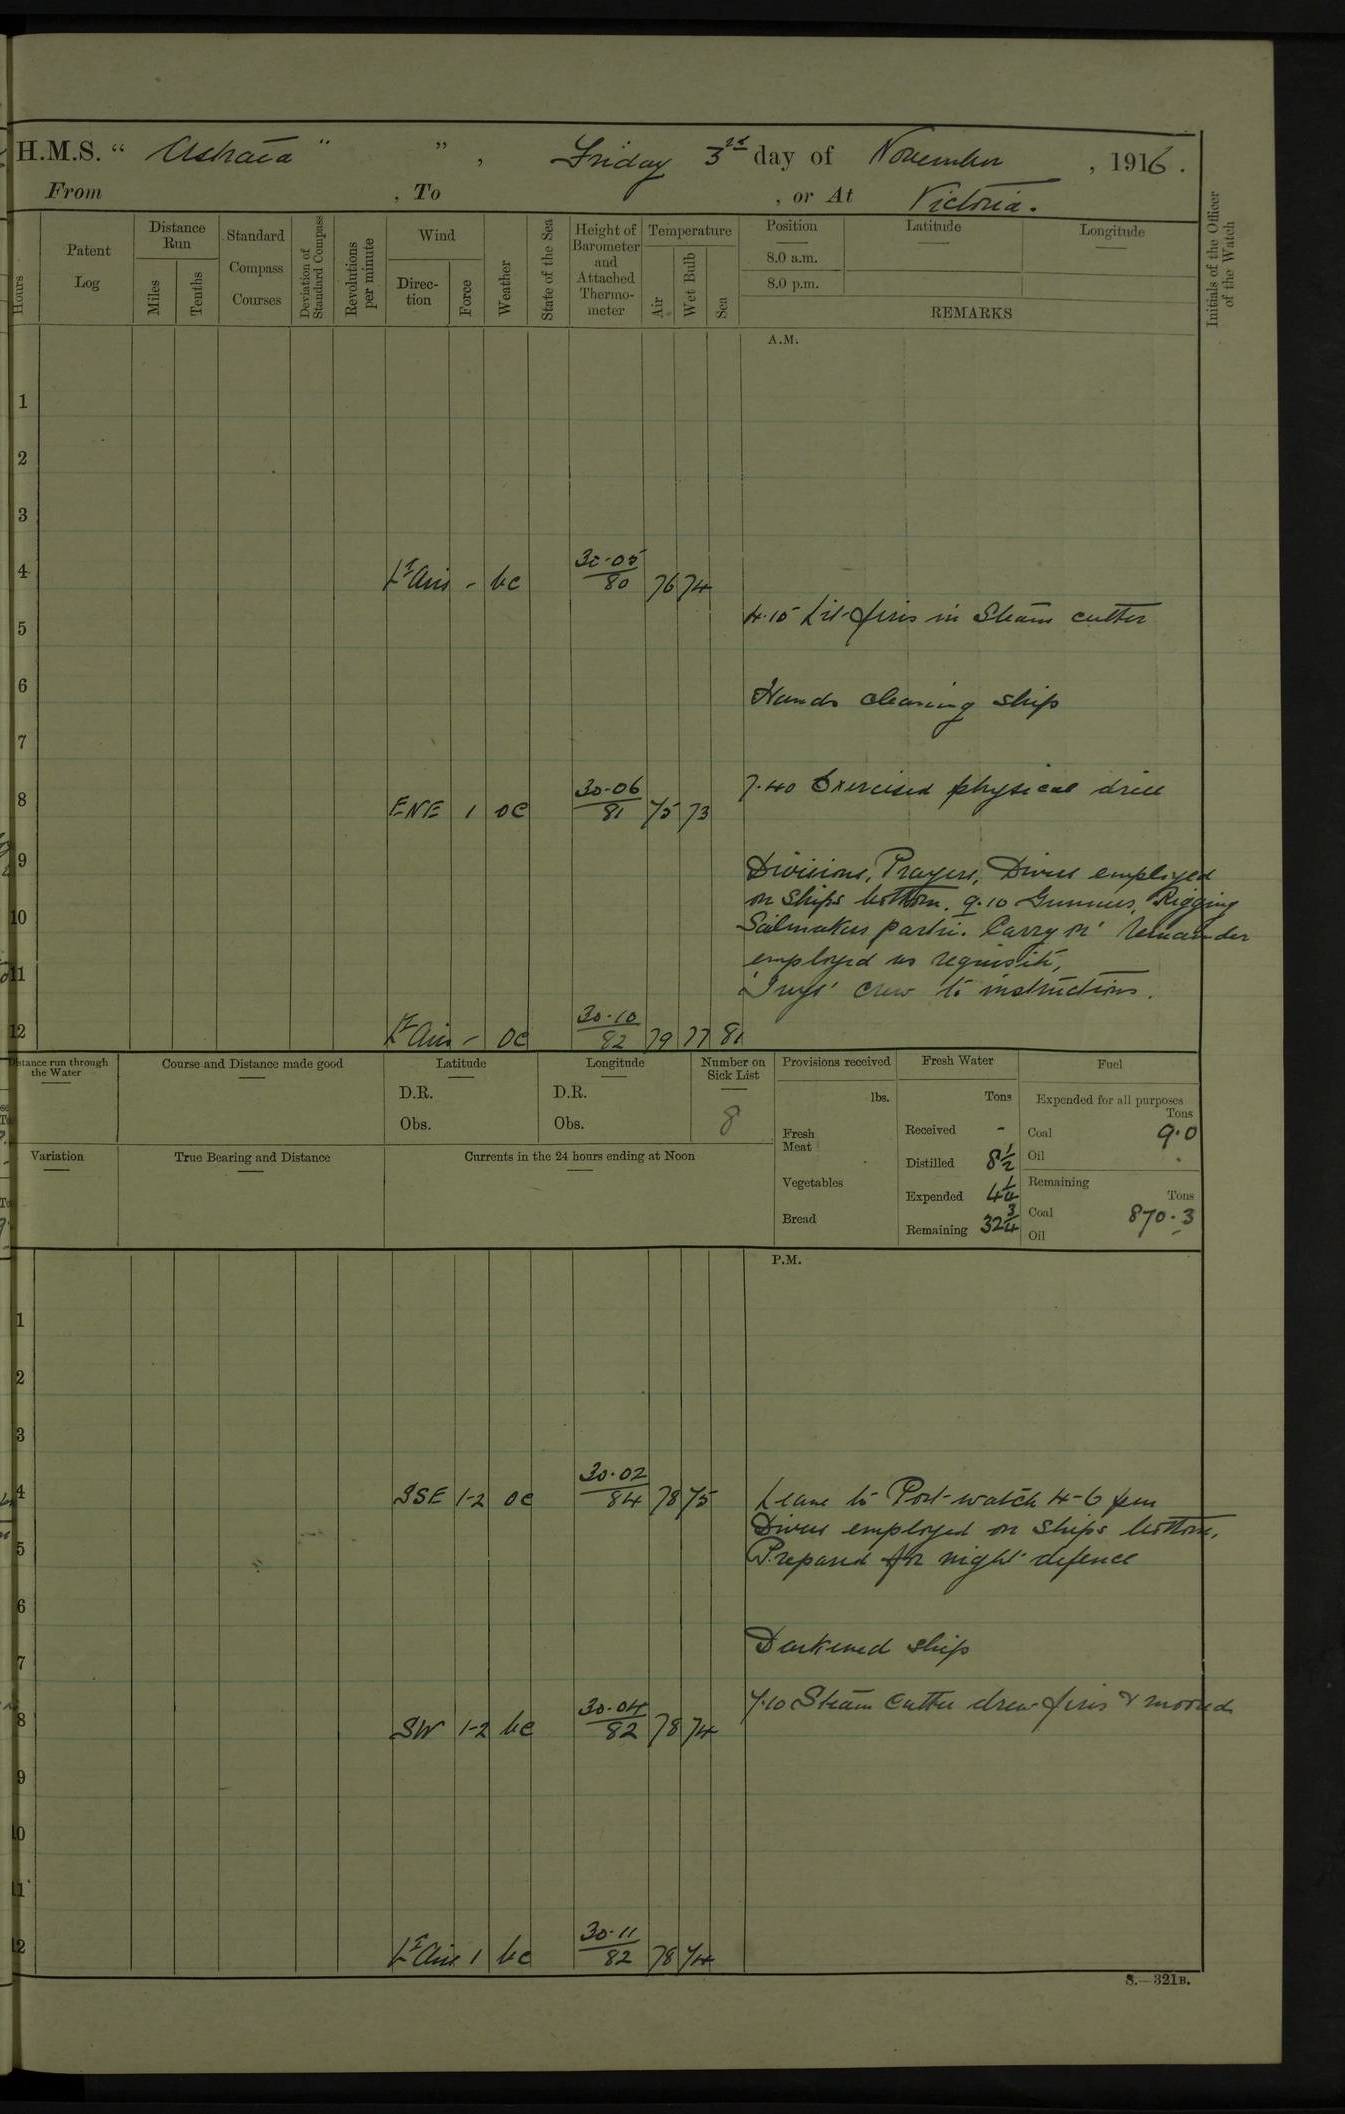 H.M.S. “ Astraea ” ” , Friday 3rd day of November , 1916 .
From , To , or At Victoria.
Hours
Patent Log
Distance Run
Miles
Tenths
Standard Compass Courses
Deviation of Standard Compass
Revolutions per minute
Wind
Direction
Force
Weather
State of the Sea
Height of Barometer and Attached Thermometer
Temperature
Air
Wet Bulb
Sea
Position
8.0 a.m.
8.0 p.m.
Latitude
Longitude
REMARKS
Initials of the Officer of the Watch
A.M.
1
2
3
4 Lt Airs - bc 30.05/80 76 74
4.15 Lit fires in Steam cutter
5
6
Hands cleaning ship
7
7.40 Exercised physical drill
8 ENE 1 oc 30.06/81 75 73
9
Divisions, Prayers, Divers employed
on ships bottom. 9.10 Gunners, Rigging
10
Sailmakers parties. Carry on. Remainder
employed as requisite,
11
crew to instructions.
12 Lt Airs - oc 30.10/82 79 77 81
Distance run through the Water
Course and Distance made good
Latitude
D.R.
Obs.
Longitude
D.R.
Obs.
Number on Sick List
8
Provisions received
lbs.
Fresh Meat
Vegetables
Bread
Fresh Water
Tons
Received -
Distilled 8½
Expended 4¼
Remaining 32¾
Fuel
Expended for all purposes
Tons
Coal 9.0
Oil
Remaining
Tons
Coal 870.3
Oil
Variation
True Bearing and Distance
Currents in the 24 hours ending at Noon
P.M.
1
2
3
4 SSE 1-2 oc 30.02/84 78 75
Leave to Port watch 4-6 pm
Divers employed on ships bottom,
5
Prepared for night defence
6
Darkened ship
7
7.10 Steam Cutter drew fires & moored
8 SW 1-2 bc 30.04/82 78 74
9
10
11
12 Lt Airs 1 bc 30.11/82 78 74
S.—321B.